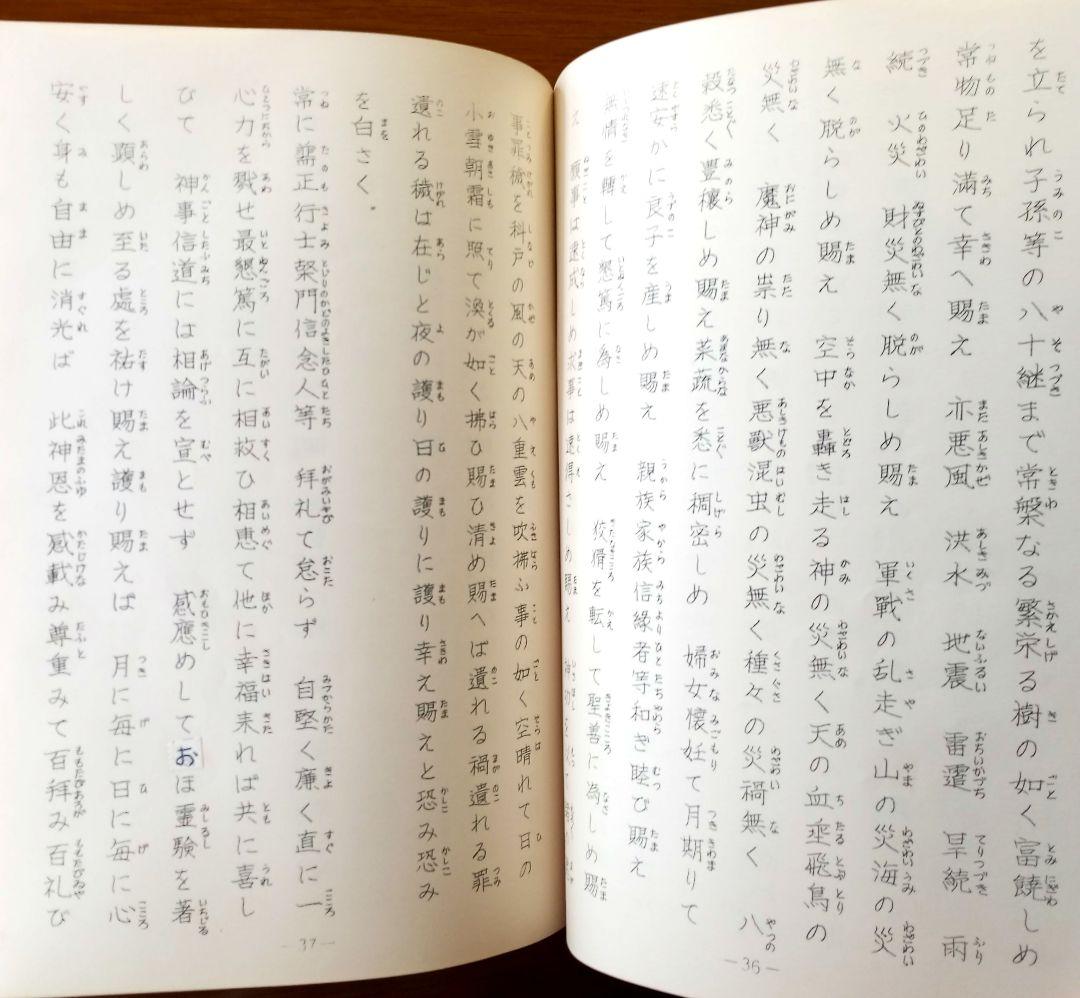 を立られ子孫等の八十継まで常磐なる繁栄る樹の如く富饒しめ
常物足り満て幸へ賜え 亦悪風 洪水 地震 雷霆 旱続 雨
続 火災 財災無く脱らしめ賜え 軍戰の乱走ぎ山の災海の災
無く脱らしめ賜え 空中を轟き走る神の災無く天の血垂飛鳥の
災無く 魔神の祟り無く悪獸混虫の災無く種々の災禍無く 八
穀悉く豊穰しめ賜え菜蔬を悉に稠密しめ 婦女懐妊て月期りて
速安かに良子を産しめ賜え 親族家族信縁者等和ぎ睦び賜え
無情を轉して懇篤に為しめ賜え 狡猾を転して聖善に為しめ賜
え 願事は速成しめ求事は速得さしめ賜え
—36—
事罪穢を科戸の風の天の八重雲を吹拂ふ事の如く空晴れて日の
小雪朝霜に照て渙が如く拂ひ賜ひ清め賜へば遺れる禍遺れる罪
遺れる穢は在じと夜の護り日の護りに護り幸え賜えと恐み恐み
を白さく。
常に正行士門信念人等 拜礼て怠らず 自堅く廉く直に一
心力を戮せ最懇篤に互に相救ひ相恵て他に幸福来れば共に喜し
びて 神事信道には相論を宣とせず 感應めしておほ霊験を著
しく顕しめ至る處を祐け賜え護り賜えば 月に毎に日に毎に心
安く身も自由に消光ば 此神恩を感載み尊重みて百拜み百礼び
—37—